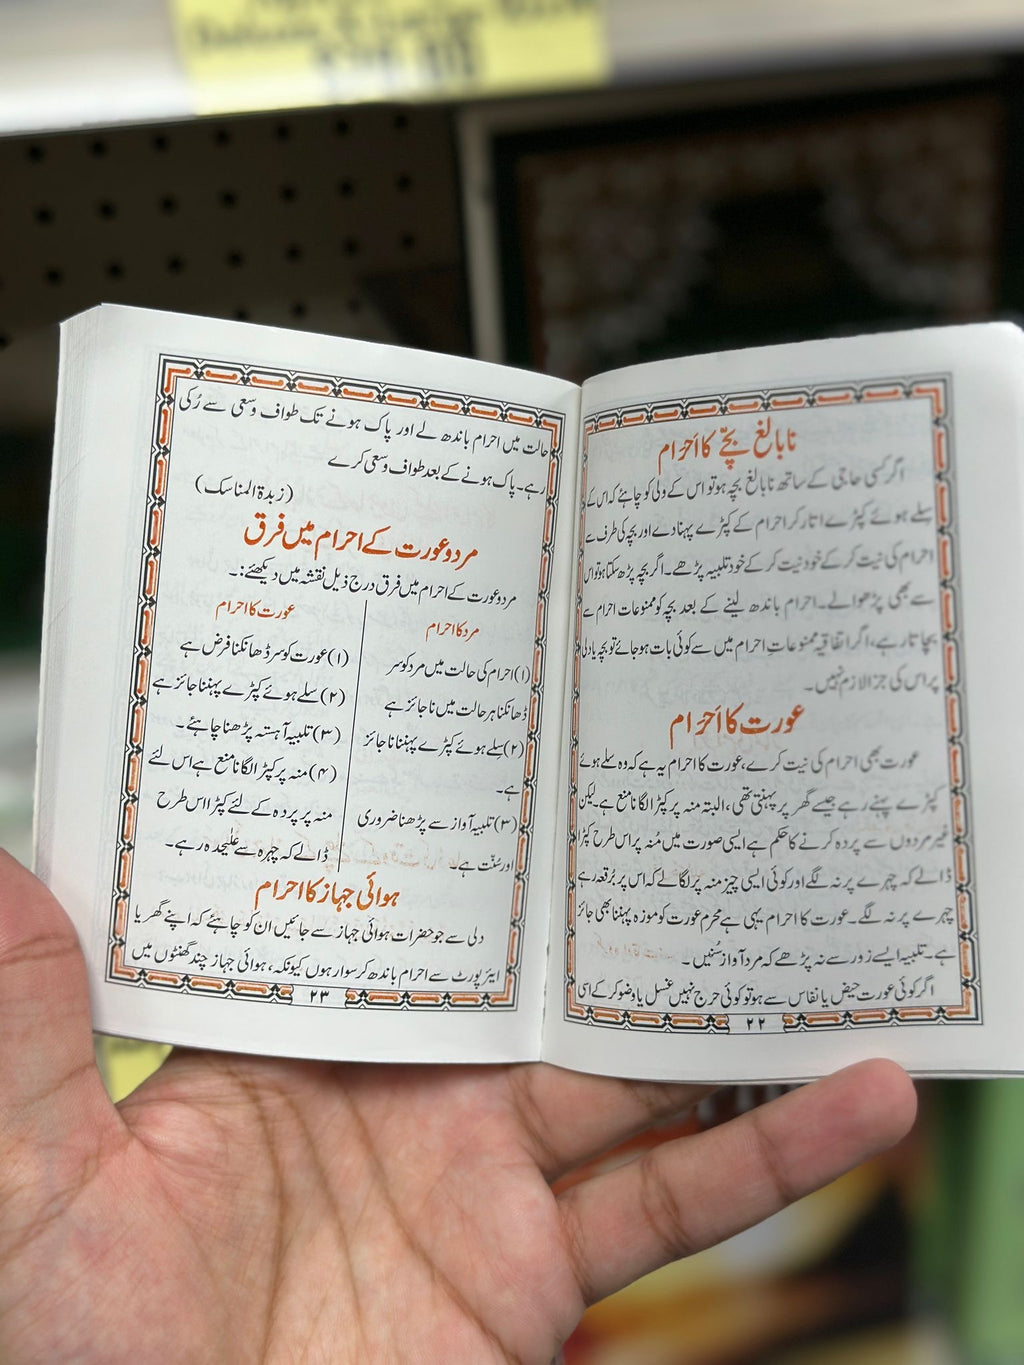 نابالغ بچّے کا اَحرَام
اگر کسی حاجی کے ساتھ نابالغ بچہ ہو تو اس کے ولی کو چاہئے کہ اس کے
سِلے ہوئے کپڑے اتار کر احرام کے کپڑے پہنا دے اور بچہ کی طرف سے
احرام کی نیت کر کے خود نیت کر کے خود تلبیہ پڑھے۔ اگر بچہ پڑھ سکتا ہو تو اس
سے بھی پڑھوالے۔ احرام باندھ لینے کے بعد بچہ کو ممنوعات احرام سے
بچاتا رہے، اگر اتفاقیہ ممنوعاتِ احرام میں سے کوئی بات ہو جائے تو بچہ یا ولی
پر اس کی جزا لازم نہیں۔
عورت کا اَحرَام
عورت بھی احرام کی نیت کرے، عورت کا احرام یہ ہے کہ وہ سلے ہوئے
کپڑے پہنے رہے جیسے گھر پر پہنتی تھی، البتہ منہ پر کپڑا لگانا منع ہے۔ لیکن
غیر مردوں سے پردہ کرنے کا حکم ہے ایسی صورت میں مُنہ پر اس طرح کپڑا
ڈالے کہ چہرے پر نہ لگے اور کوئی ایسی چیز منہ پر لگالے کہ اس پر بُرقعہ رہے
چہرے پر نہ لگے۔ عورت کا احرام یہی ہے محرم عورت کو موزہ پہننا بھی جائز
ہے۔ تلبیہ ایسے زور سے نہ پڑھے کہ مرد آواز سُنیں۔
اگر کوئی عورت حیض یا نفاس سے ہو تو کوئی حرج نہیں غسل یا وضو کر کے اسی
۲۲
حالت میں احرام باندھ لے اور پاک ہونے تک طواف وسعی سے رُکی
رہے۔ پاک ہونے کے بعد طواف وسعی کرے
(زبدۃ المناسک)
مرد و عورت کے احرام میں فرق
مرد و عورت کے احرام میں فرق درج ذیل نقشہ میں دیکھئے:۔
مرد کا احرام
(۱) احرام کی حالت میں مرد کو سر
ڈھانکنا ہر حالت میں ناجائز ہے
(۲) سِلے ہوئے کپڑے پہننا ناجائز
ہے۔
(۳) تلبیہ آواز سے پڑھنا ضروری
اور سُنّت ہے۔
عورت کا احرام
(۱) عورت کو سر ڈھانکنا فرض ہے
(۲) سلے ہوئے کپڑے پہننا جائز ہے
(۳) تلبیہ آہستہ پڑھنا چاہئے۔
(۴) منہ پر کپڑا لگانا منع ہے اس لئے
منہ پر پردہ کے لئے کپڑا اس طرح
ڈالے کہ چہرہ سے علیٰحدہ رہے۔
ہوائی جہاز کا احرام
دلی سے جو حضرات ہوائی جہاز سے جائیں ان کو چاہئے کہ اپنے گھر یا
ایئر پورٹ سے احرام باندھ کر سوار ہوں کیونکہ، ہوائی جہاز چند گھنٹوں میں
۲۳